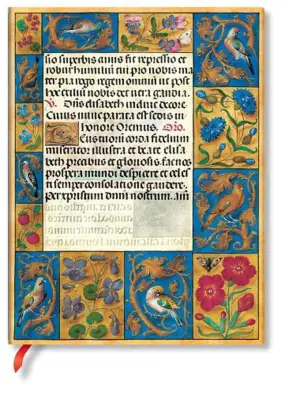 sio superbis annis fit repressio et
robur humili cui pro nobis ma
ter pia rogo regem omniu ut post
hoc exiliu nobis det vera gaudia.
V. Dñs elisabeth induit decore
Cuius parata est sedis in
honore Oremus. Oro.
corda fidelium
miserator illustra et elisa
beth precibus et gloriosis
prospera mundi despicere et celes
ti semper consolatione gaudere.
Per xpistum dnm nostrum. am